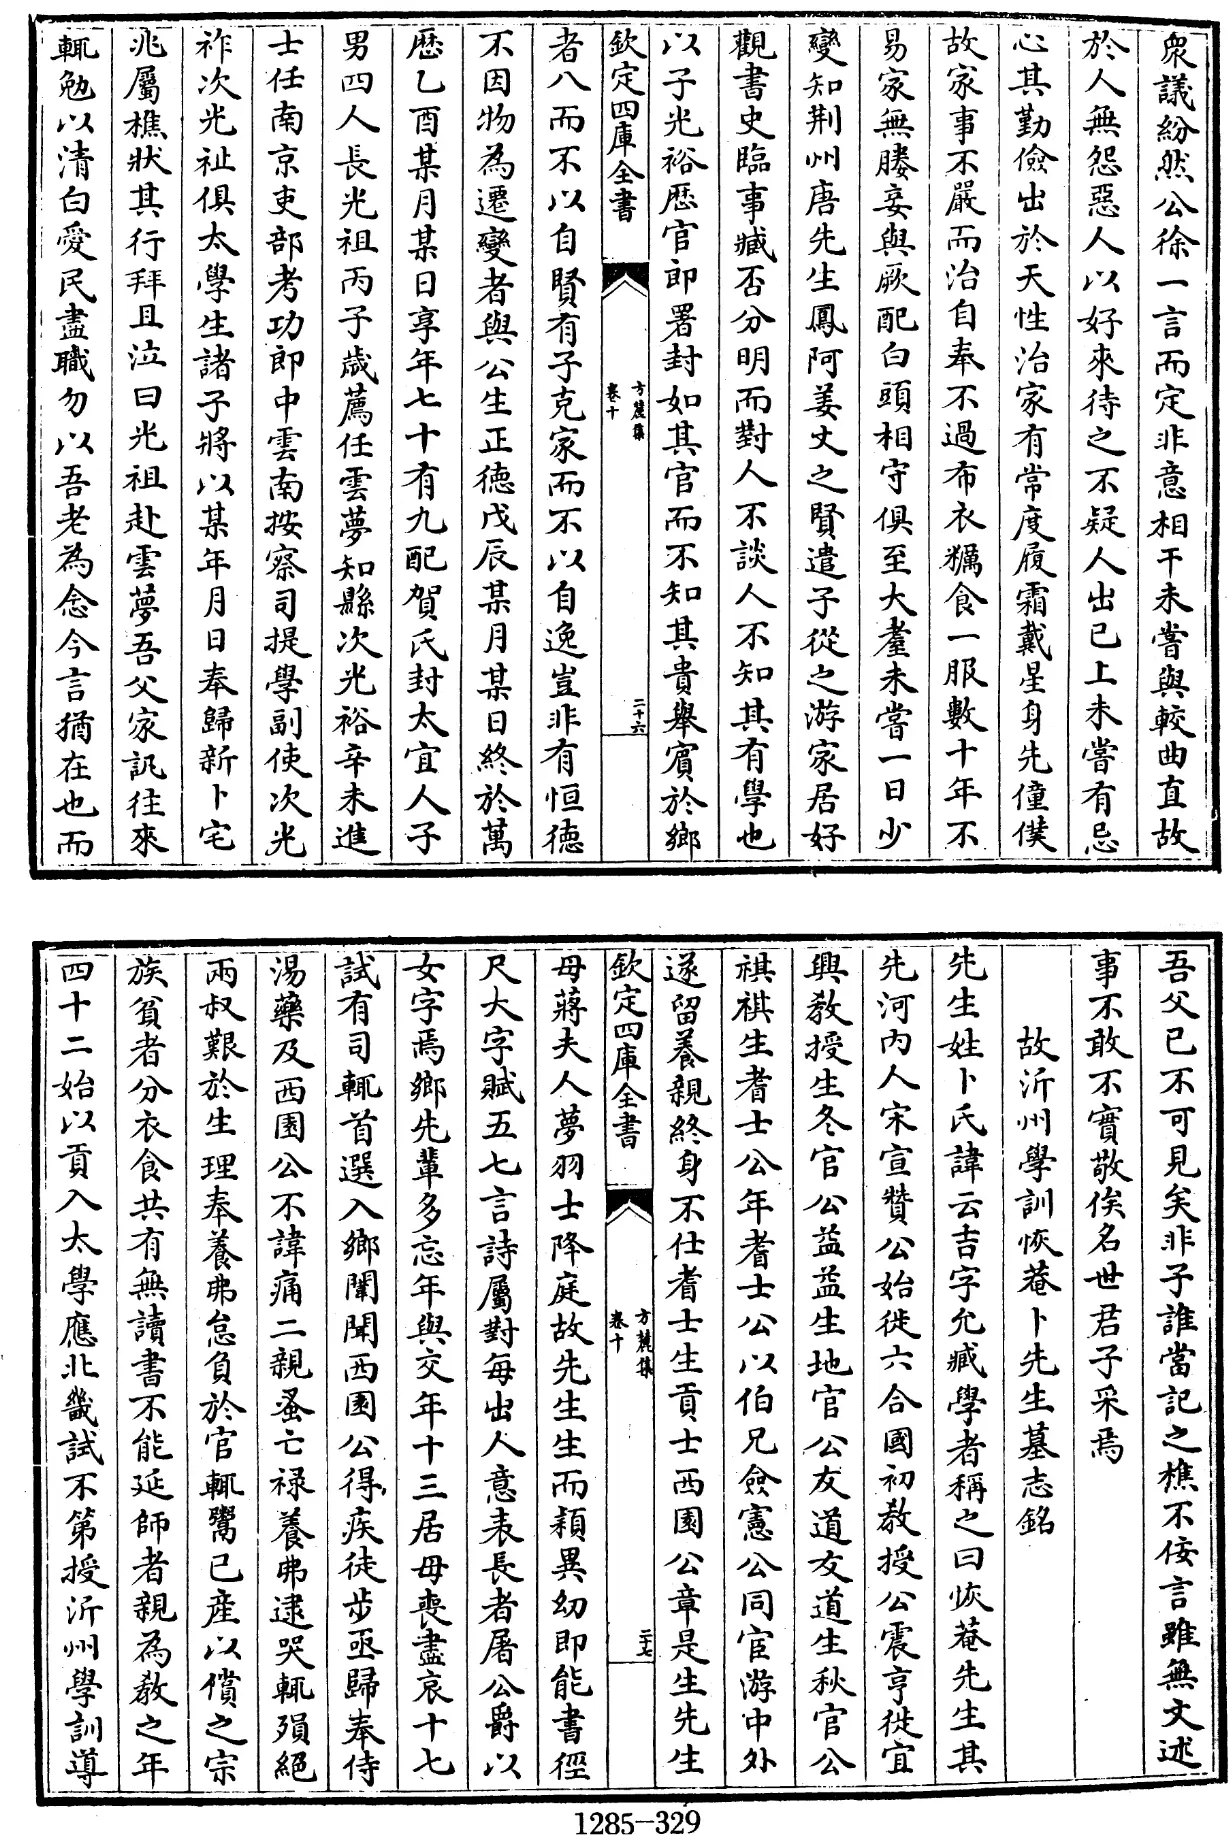 衆議紛然公徐一言而定非意相干未嘗與較曲直故
於人無怨惡人以好來待之不疑人出已上未嘗有忌
心其勤儉出於天性治家有常度履霜戴星身先僮僕
故家事不嚴而治自奉不過布衣糲食一服數十年不
易家無媵妾與厥配白頭相守俱至大耋未嘗一日少
變知荆州唐先生鳳阿姜丈之賢遣子從之游家居好
觀書史臨事臧否分明而對人不談人不知其有學也
以子光裕歷官郎署封如其官而不知其貴舉賓於鄉
欽定四庫全書
方麓集
卷十
二十六
者八而不以自賢有子克家而不以自逸豈非有恒德
不因物為遷變者與公生正德戊辰某月某日終於萬
歷乙酉某月某日享年七十有九配賀氏封太宜人子
男四人長光祖丙子歲薦任雲夢知縣次光裕辛未進
士任南京吏部考功郎中雲南按察司提學副使次光
祚次光祉俱太學生諸子將以某年月日奉歸新卜宅
兆屬樵狀其行拜且泣曰光祖赴雲夢吾父家訊往來
輒勉以清白愛民盡職勿以吾老為念今言猶在也而
吾父已不可見矣非子誰當記之樵不佞言雖無文述
事不敢不實敬俟名世君子采焉
故沂州學訓恢菴卜先生墓志銘
先生姓卜氏諱云吉字允臧學者稱之曰恢菴先生其
先河内人宋宣贊公始徙六合國初教授公震亨徙宜
興教授生冬官公益益生地官公友道友道生秋官公
祺祺生耆士公年耆士公以伯兄僉憲公同宦游中外
遂留養親終身不仕耆士生貢士西園公章是生先生
欽定四庫全書
方麓集
卷十
二十七
母蔣夫人夢羽士降庭故先生生而穎異幼即能書徑
尺大字賦五七言詩屬對每出人意表長者屠公爵以
女字焉鄉先輩多忘年與交年十三居母喪盡哀十七
試有司輒首選入鄉闈聞西園公得疾徒步亟歸奉侍
湯藥及西園公不諱痛二親蚤亡禄養弗逮哭輒殞絕
兩叔艱於生理奉養弗怠負於官輒鬻已產以償之宗
族貧者分衣食共有無讀書不能延師者親為教之年
四十二始以貢入太學應北畿試不第授沂州學訓導
1285-329